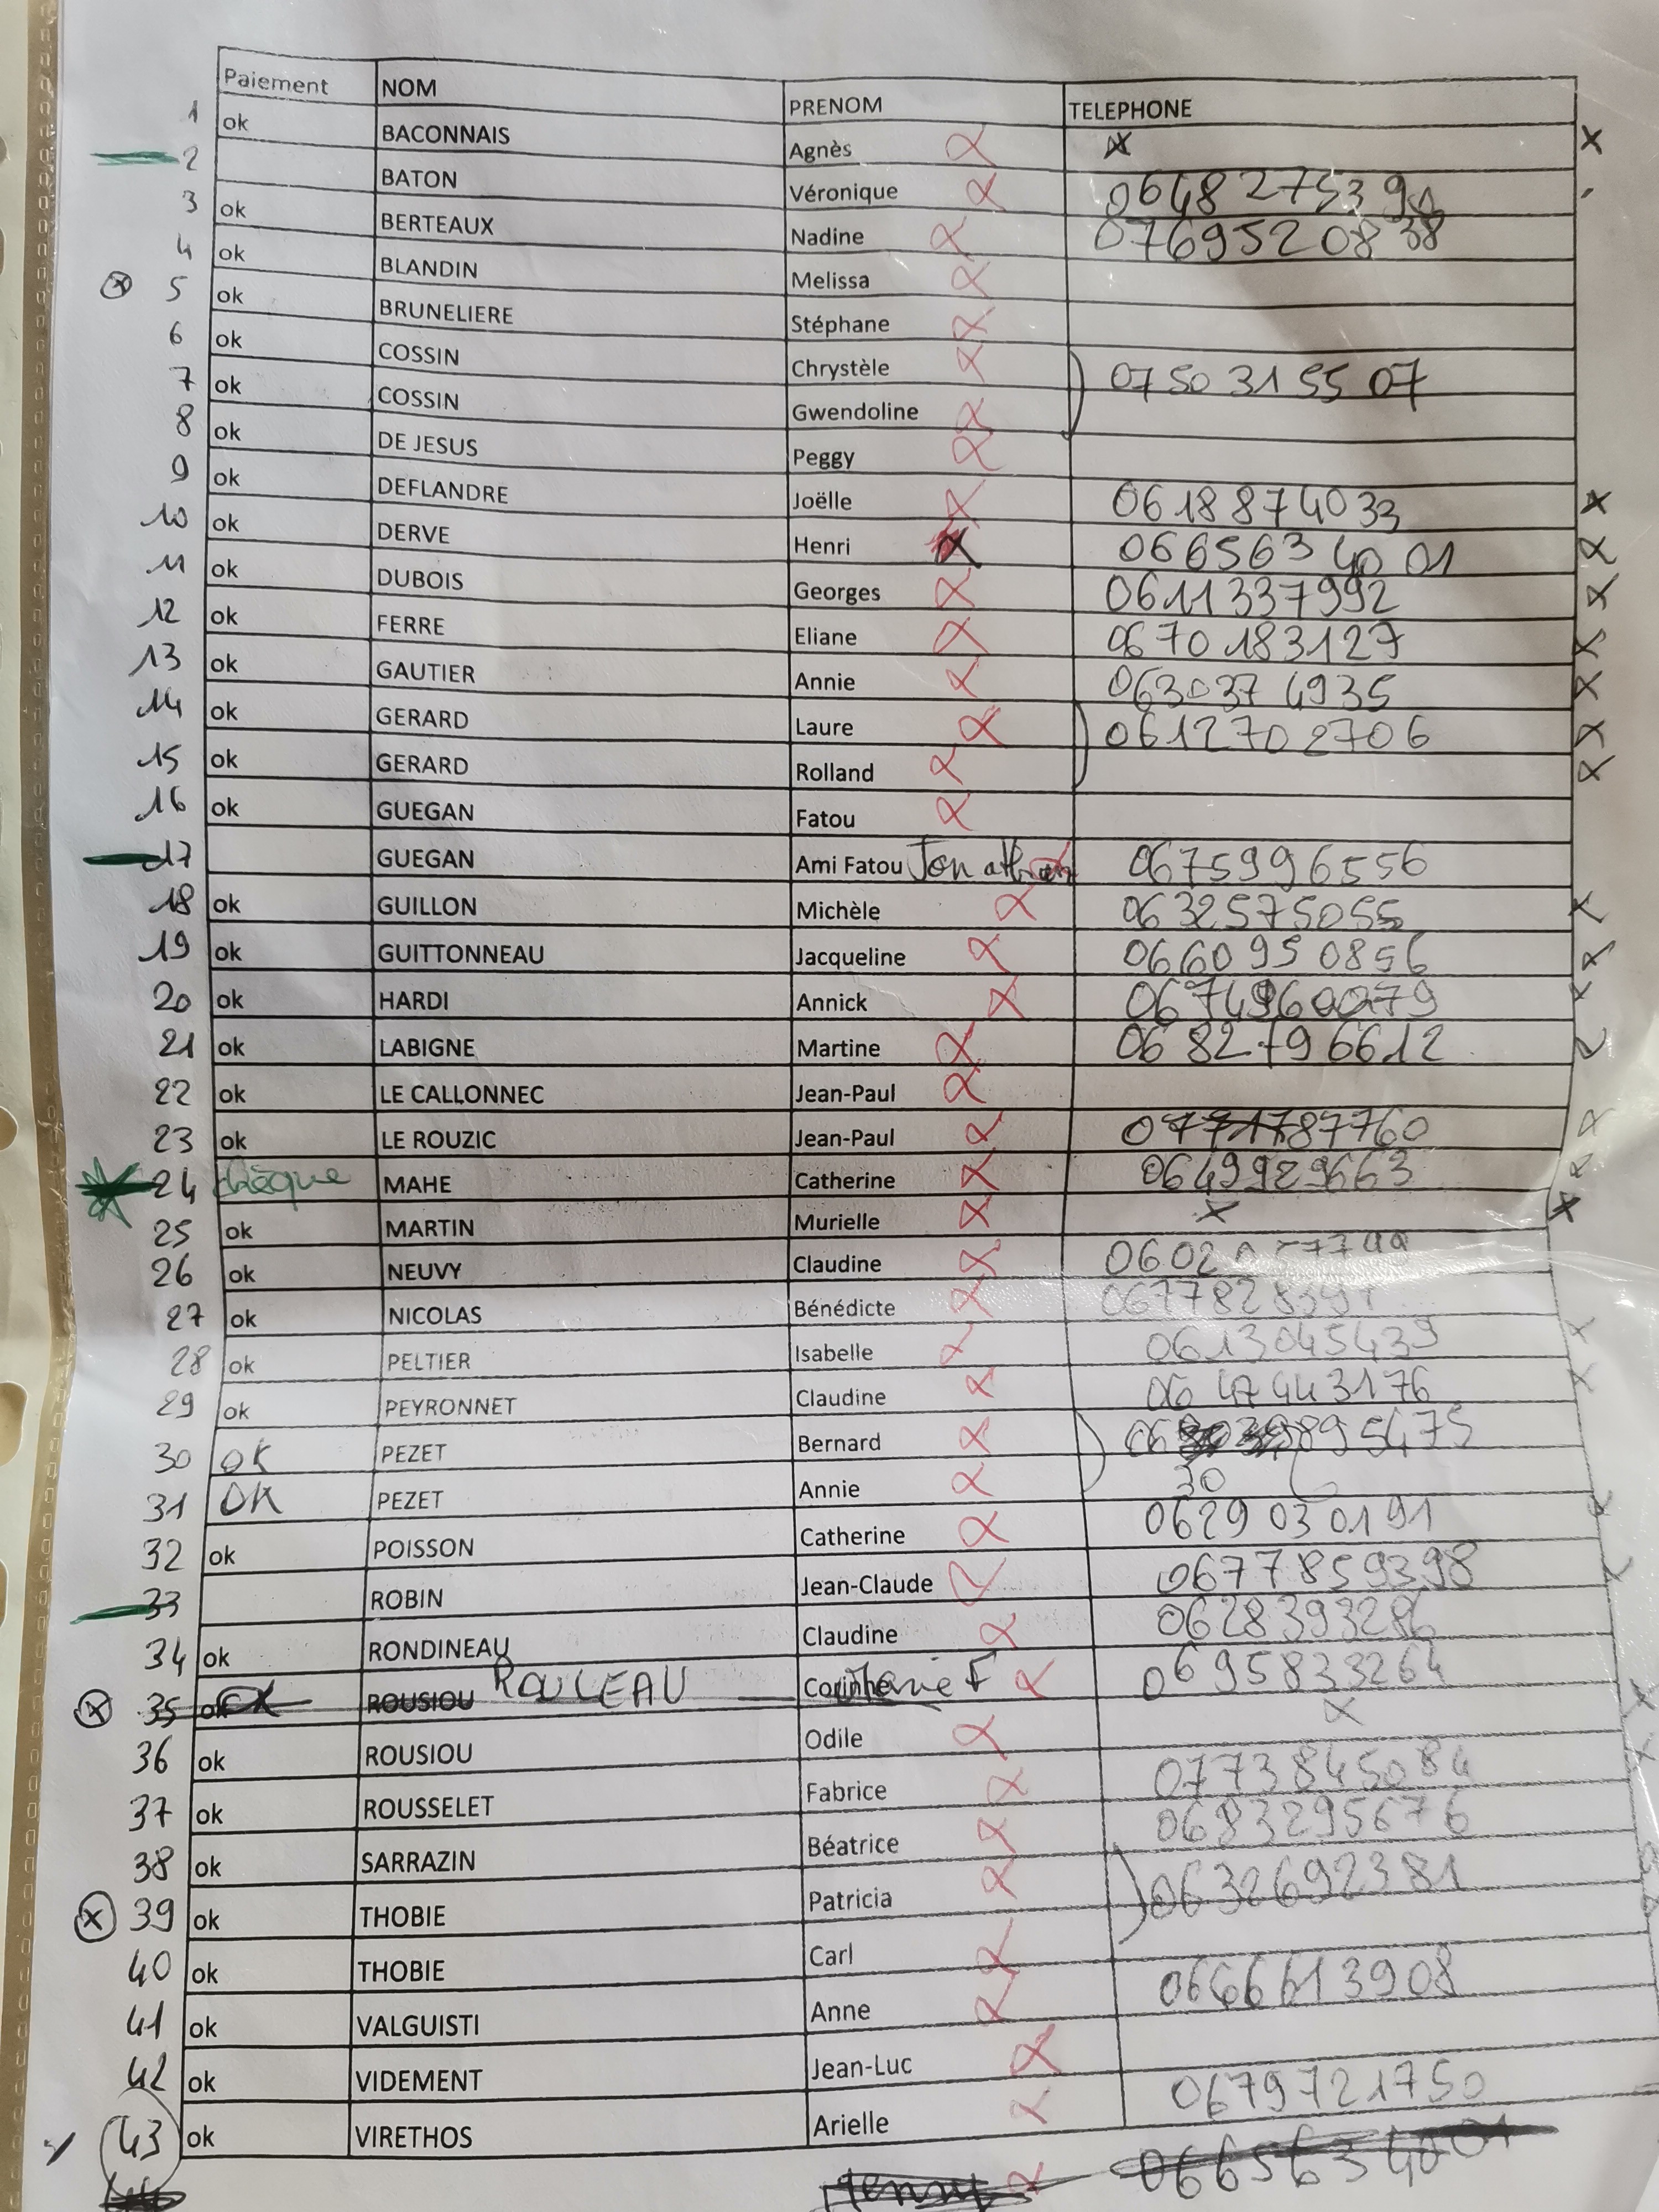 Paiement NOM PRENOM TELEPHONE
1 ok BACONNAIS Agnès
2 BATON Véronique
3 ok BERTEAUX Nadine 0769520838
4 ok BLANDIN Melissa
5 ok BRUNELIERE Stéphane
6 ok COSSIN Chrystèle 0750315507
7 ok COSSIN Gwendoline
8 ok DE JESUS Peggy
9 ok DEFLANDRE Joëlle 0618874033
10 ok DERVE Henri 0665634001
11 ok DUBOIS Georges 0611337992
12 ok FERRE Eliane 0670183127
13 ok GAUTIER Annie 0630374935
14 ok GERARD Laure 0612702706
15 ok GERARD Rolland
16 ok GUEGAN Fatou
17 GUEGAN Ami Fatou Jonathan 0675996556
18 ok GUILLON Michèle 0632575055
19 ok GUITTONNEAU Jacqueline 0660950856
20 ok HARDI Annick
21 ok LABIGNE Martine 0682796612
22 ok LE CALLONNEC Jean-Paul
23 ok LE ROUZIC Jean-Paul
24 chèque MAHE Catherine 0649929663
25 ok MARTIN Murielle
26 ok NEUVY Claudine
27 ok NICOLAS Bénédicte
28 ok PELTIER Isabelle 0613045439
29 ok PEYRONNET Claudine 0647443176
30 OK PEZET Bernard
31 OK PEZET Annie 30
32 ok POISSON Catherine 0629030191
33 ROBIN Jean-Claude 0677859398
34 ok RONDINEAU Claudine 0628393286
35 ok ROUSIOU ROULEAU Corinne Marie F 0695833264
36 ok ROUSIOU Odile
37 ok ROUSSELET Fabrice 0773845084
38 ok SARRAZIN Béatrice 0683295676
39 ok THOBIE Patricia 0632692381
40 ok THOBIE Carl
41 ok VALGUISTI Anne 0666613908
42 ok VIDEMENT Jean-Luc
43 ok VIRETHOS Arielle 0679721750
0665634001